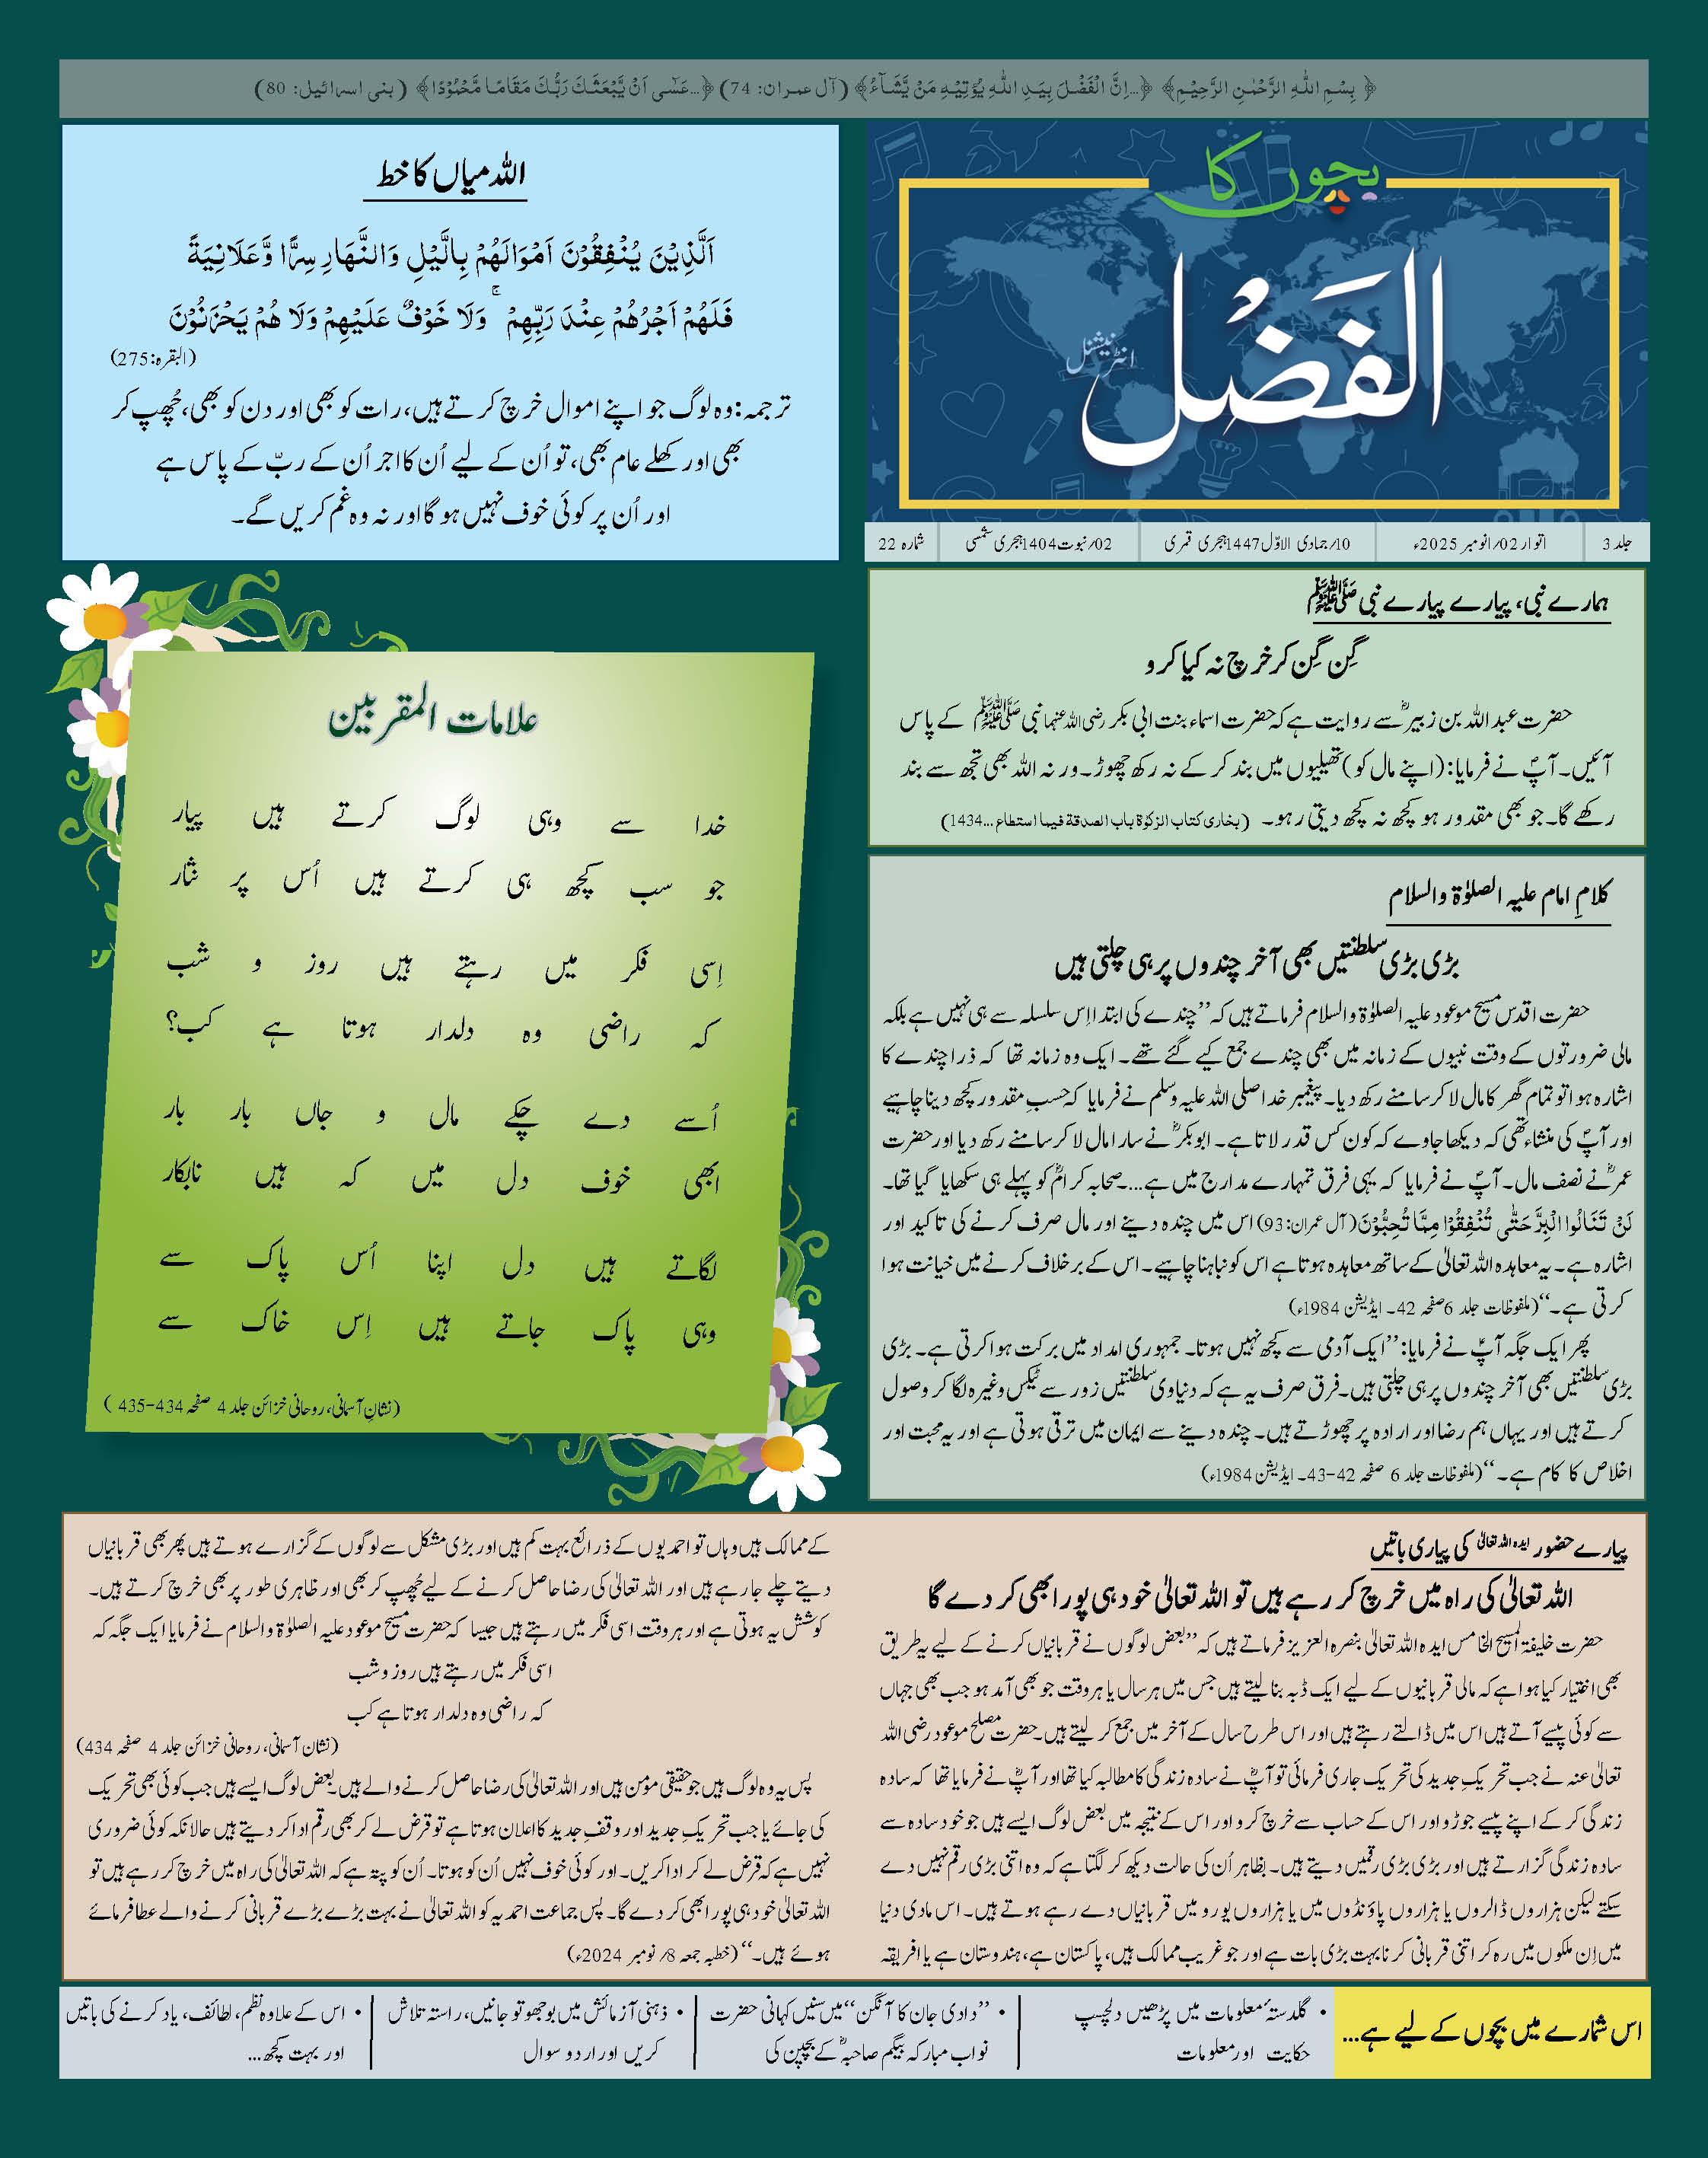 ﴿ بِسْمِ اللّٰهِ الرَّحْمٰنِ الرَّحِيْمِ﴾ ﴿...اِنَّ الْفَضْلَ بِيَدِ اللّٰهِ يُؤْتِيْهِ مَنْ يَّشَآءُ﴾ (آل عمران: 74) ﴿...عَسٰٓى اَنْ يَّبْعَثَكَ رَبُّكَ مَقَامًا مَّحْمُوْدًا﴾ (بنی اسرائیل: 80)
بچوں کا
الفضل
انٹرنیشنل
جلد 3
اتوار 02؍نومبر 2025ء
10؍جمادی الاوّل 1447 ہجری قمری
02؍نبوت 1404 ہجری شمسی
شمارہ 22
اللہ میاں کا خط
اَلَّذِيْنَ يُنْفِقُوْنَ اَمْوَالَهُمْ بِالَّيْلِ وَالنَّهَارِ سِرًّا وَّعَلَانِيَةً
فَلَهُمْ اَجْرُهُمْ عِنْدَ رَبِّهِمْ ۚ وَلَا خَوْفٌ عَلَيْهِمْ وَلَا هُمْ يَحْزَنُوْنَ
(البقرہ:275)
ترجمہ: وہ لوگ جو اپنے اموال خرچ کرتے ہیں، رات کو بھی اور دن کو بھی، چُھپ کر
بھی اور کھلے عام بھی، تو اُن کے لیے اُن کا اجر اُن کے ربّ کے پاس ہے
اور اُن پر کوئی خوف نہیں ہو گا اور نہ وہ غم کریں گے۔
ہمارے نبی، پیارے پیارے نبی ﷺ
گِن گِن کر خرچ نہ کیا کرو
حضرت عبد اللہ بن زبیرؓ سے روایت ہے کہ حضرت اسماء بنت ابی بکر رضی اللہ عنہما نبی ﷺ کے پاس
آئیں۔ آپؐ نے فرمایا: (اپنے مال کو) تھیلیوں میں بند کر کے نہ رکھ چھوڑ۔ ورنہ اللہ بھی تجھ سے بند
رکھے گا۔ جو بھی مقدور ہو کچھ نہ کچھ دیتی رہو۔ (بخاری کتاب الزکوۃ باب الصدقة فیما استطاع...1434)
کلامِ امام علیہ الصلوٰۃ والسلام
بڑی بڑی سلطنتیں بھی آخر چندوں پر ہی چلتی ہیں
حضرت اقدس مسیح موعود علیہ الصلوٰۃ والسلام فرماتے ہیں کہ ’’چندے کی ابتدا اِس سلسلہ سے ہی نہیں ہے بلکہ
مالی ضرورتوں کے وقت نبیوں کے زمانہ میں بھی چندے جمع کیے گئے تھے۔ ایک وہ زمانہ تھا کہ ذرا چندے کا
اشارہ ہوا تو تمام گھر کا مال لا کر سامنے رکھ دیا۔ پیغمبر خدا صلی اللہ علیہ وسلم نے فرمایا کہ حسبِ مقدور کچھ دینا چاہیے
اور آپؐ کی منشاء تھی کہ دیکھا جاوے کہ کون کس قدر لاتا ہے۔ ابوبکرؓ نے سارا مال لا کر سامنے رکھ دیا اور حضرت
عمرؓ نے نصف مال۔ آپؐ نے فرمایا کہ یہی فرق تمہارے مدارج میں ہے.... صحابہ کرامؓ کو پہلے ہی سکھایا گیا تھا۔
لَنْ تَنَالُوا الْبِرَّ حَتّٰى تُنْفِقُوْا مِمَّا تُحِبُّوْنَ (آل عمران:93) اس میں چندہ دینے اور مال صرف کرنے کی تاکید اور
اشارہ ہے۔ یہ معاہدہ اللہ تعالیٰ کے ساتھ معاہدہ ہوتا ہے اس کو نباہنا چاہیے۔ اس کے برخلاف کرنے میں خیانت ہوا
کرتی ہے۔‘‘ (ملفوظات جلد 6 صفحہ 42۔ ایڈیشن 1984ء)
پھر ایک جگہ آپؑ نے فرمایا: ’’ایک آدمی سے کچھ نہیں ہوتا۔ جمہوری امداد میں برکت ہوا کرتی ہے۔ بڑی
بڑی سلطنتیں بھی آخر چندوں پر ہی چلتی ہیں۔ فرق صرف یہ ہے کہ دنیاوی سلطنتیں زور سے ٹیکس وغیرہ لگا کر وصول
کرتے ہیں اور یہاں ہم رضا اور ارادہ پر چھوڑتے ہیں۔ چندہ دینے سے ایمان میں ترقی ہوتی ہے اور یہ محبت اور
اخلاص کا کام ہے۔‘‘ (ملفوظات جلد 6 صفحہ 42-43۔ ایڈیشن 1984ء)
علامات المقربین
خدا سے وہی لوگ کرتے ہیں پیار
جو سب کچھ ہی کرتے ہیں اُس پر نثار
اِسی فکر میں رہتے ہیں روز و شب
کہ راضی وہ دلدار ہوتا ہے کب؟
اُسے دے چکے مال و جاں بار بار
ابھی خوف دل میں کہ ہیں نابکار
لگاتے ہیں دل اپنا اُس پاک سے
وہی پاک جاتے ہیں اِس خاک سے
(نشانِ آسمانی، روحانی خزائن جلد 4 صفحہ 434-435 )
پیارے حضور ایدہ اللہ تعالیٰ کی پیاری باتیں
اللہ تعالیٰ کی راہ میں خرچ کر رہے ہیں تو اللہ تعالیٰ خود ہی پورا بھی کر دے گا
حضرت خلیفۃ المسیح الخامس ایدہ اللہ تعالیٰ بنصرہ العزیز فرماتے ہیں کہ ’’بعض لوگوں نے قربانیاں کرنے کے لیے یہ طریق
بھی اختیار کیا ہوا ہے کہ مالی قربانیوں کے لیے ایک ڈبہ بنا لیتے ہیں جس میں ہر سال یا ہر وقت جو بھی آمد ہو جب بھی جہاں
سے کوئی پیسے آتے ہیں اس میں ڈالتے رہتے ہیں اور اس طرح سال کے آخر میں جمع کر لیتے ہیں۔ حضرت مصلح موعود رضی اللہ
تعالیٰ عنہ نے جب تحریکِ جدید کی تحریک جاری فرمائی تو آپؓ نے سادہ زندگی کا مطالبہ کیا تھا اور آپؓ نے فرمایا تھا کہ سادہ
زندگی کر کے اپنے پیسے جوڑو اور اس کے حساب سے خرچ کرو اور اس کے نتیجہ میں بعض لوگ ایسے ہیں جو خود سادہ سے
سادہ زندگی گزارتے ہیں اور بڑی بڑی رقمیں دیتے ہیں۔ بظاہر اُن کی حالت دیکھ کر لگتا ہے کہ وہ اتنی بڑی رقم نہیں دے
سکتے لیکن ہزاروں ڈالروں یا ہزاروں پاؤنڈوں میں یا ہزاروں یورو میں قربانیاں دے رہے ہوتے ہیں۔ اس مادی دنیا
میں اِن ملکوں میں رہ کر اتنی قربانی کرنا بہت بڑی بات ہے اور جو غریب ممالک ہیں، پاکستان ہے، ہندوستان ہے یا افریقہ
کے ممالک ہیں وہاں تو احمدیوں کے ذرائع بہت کم ہیں اور بڑی مشکل سے لوگوں کے گزارے ہوتے ہیں پھر بھی قربانیاں
دیتے چلے جا رہے ہیں اور اللہ تعالیٰ کی رضا حاصل کرنے کے لیے چُھپ کر بھی اور ظاہری طور پر بھی خرچ کرتے ہیں۔
کوشش یہ ہوتی ہے اور ہر وقت اسی فکر میں رہتے ہیں جیسا کہ حضرت مسیح موعود علیہ الصلوٰۃ والسلام نے فرمایا ایک جگہ کہ
اسی فکر میں رہتے ہیں روز و شب
کہ راضی وہ دلدار ہوتا ہے کب
(نشان آسمانی، روحانی خزائن جلد 4 صفحہ 434)
پس یہ وہ لوگ ہیں جو حقیقی مؤمن ہیں اور اللہ تعالیٰ کی رضا حاصل کرنے والے ہیں۔ بعض لوگ ایسے ہیں جب کوئی بھی تحریک
کی جائے یا جب تحریکِ جدید اور وقفِ جدید کا اعلان ہوتا ہے تو قرض لے کر بھی رقم ادا کر دیتے ہیں حالانکہ کوئی ضروری
نہیں ہے کہ قرض لے کر ادا کریں۔ اور کوئی خوف نہیں اُن کو ہوتا۔ اُن کو پتہ ہے کہ اللہ تعالیٰ کی راہ میں خرچ کر رہے ہیں تو
اللہ تعالیٰ خود ہی پورا بھی کر دے گا۔ پس جماعت احمدیہ کو اللہ تعالیٰ نے بہت بڑے بڑے قربانی کرنے والے عطا فرمائے
ہوئے ہیں۔‘‘ (خطبہ جمعہ 8؍نومبر 2024ء)
اس شمارے میں بچوں کے لیے ہے...
• گلدستۂ معلومات میں پڑھیں دلچسپ
حکایت اور معلومات
• ’’دادی جان کا آنگن‘‘ میں سنیں کہانی حضرت
نواب مبارکہ بیگم صاحبہؓ کے بچپن کی
• ذہنی آزمائش میں بوجھو تو جانیں، راستہ تلاش
کریں اور اردو سوال
• اس کے علاوہ نظم، لطائف، یاد کرنے کی باتیں
اور بہت کچھ...